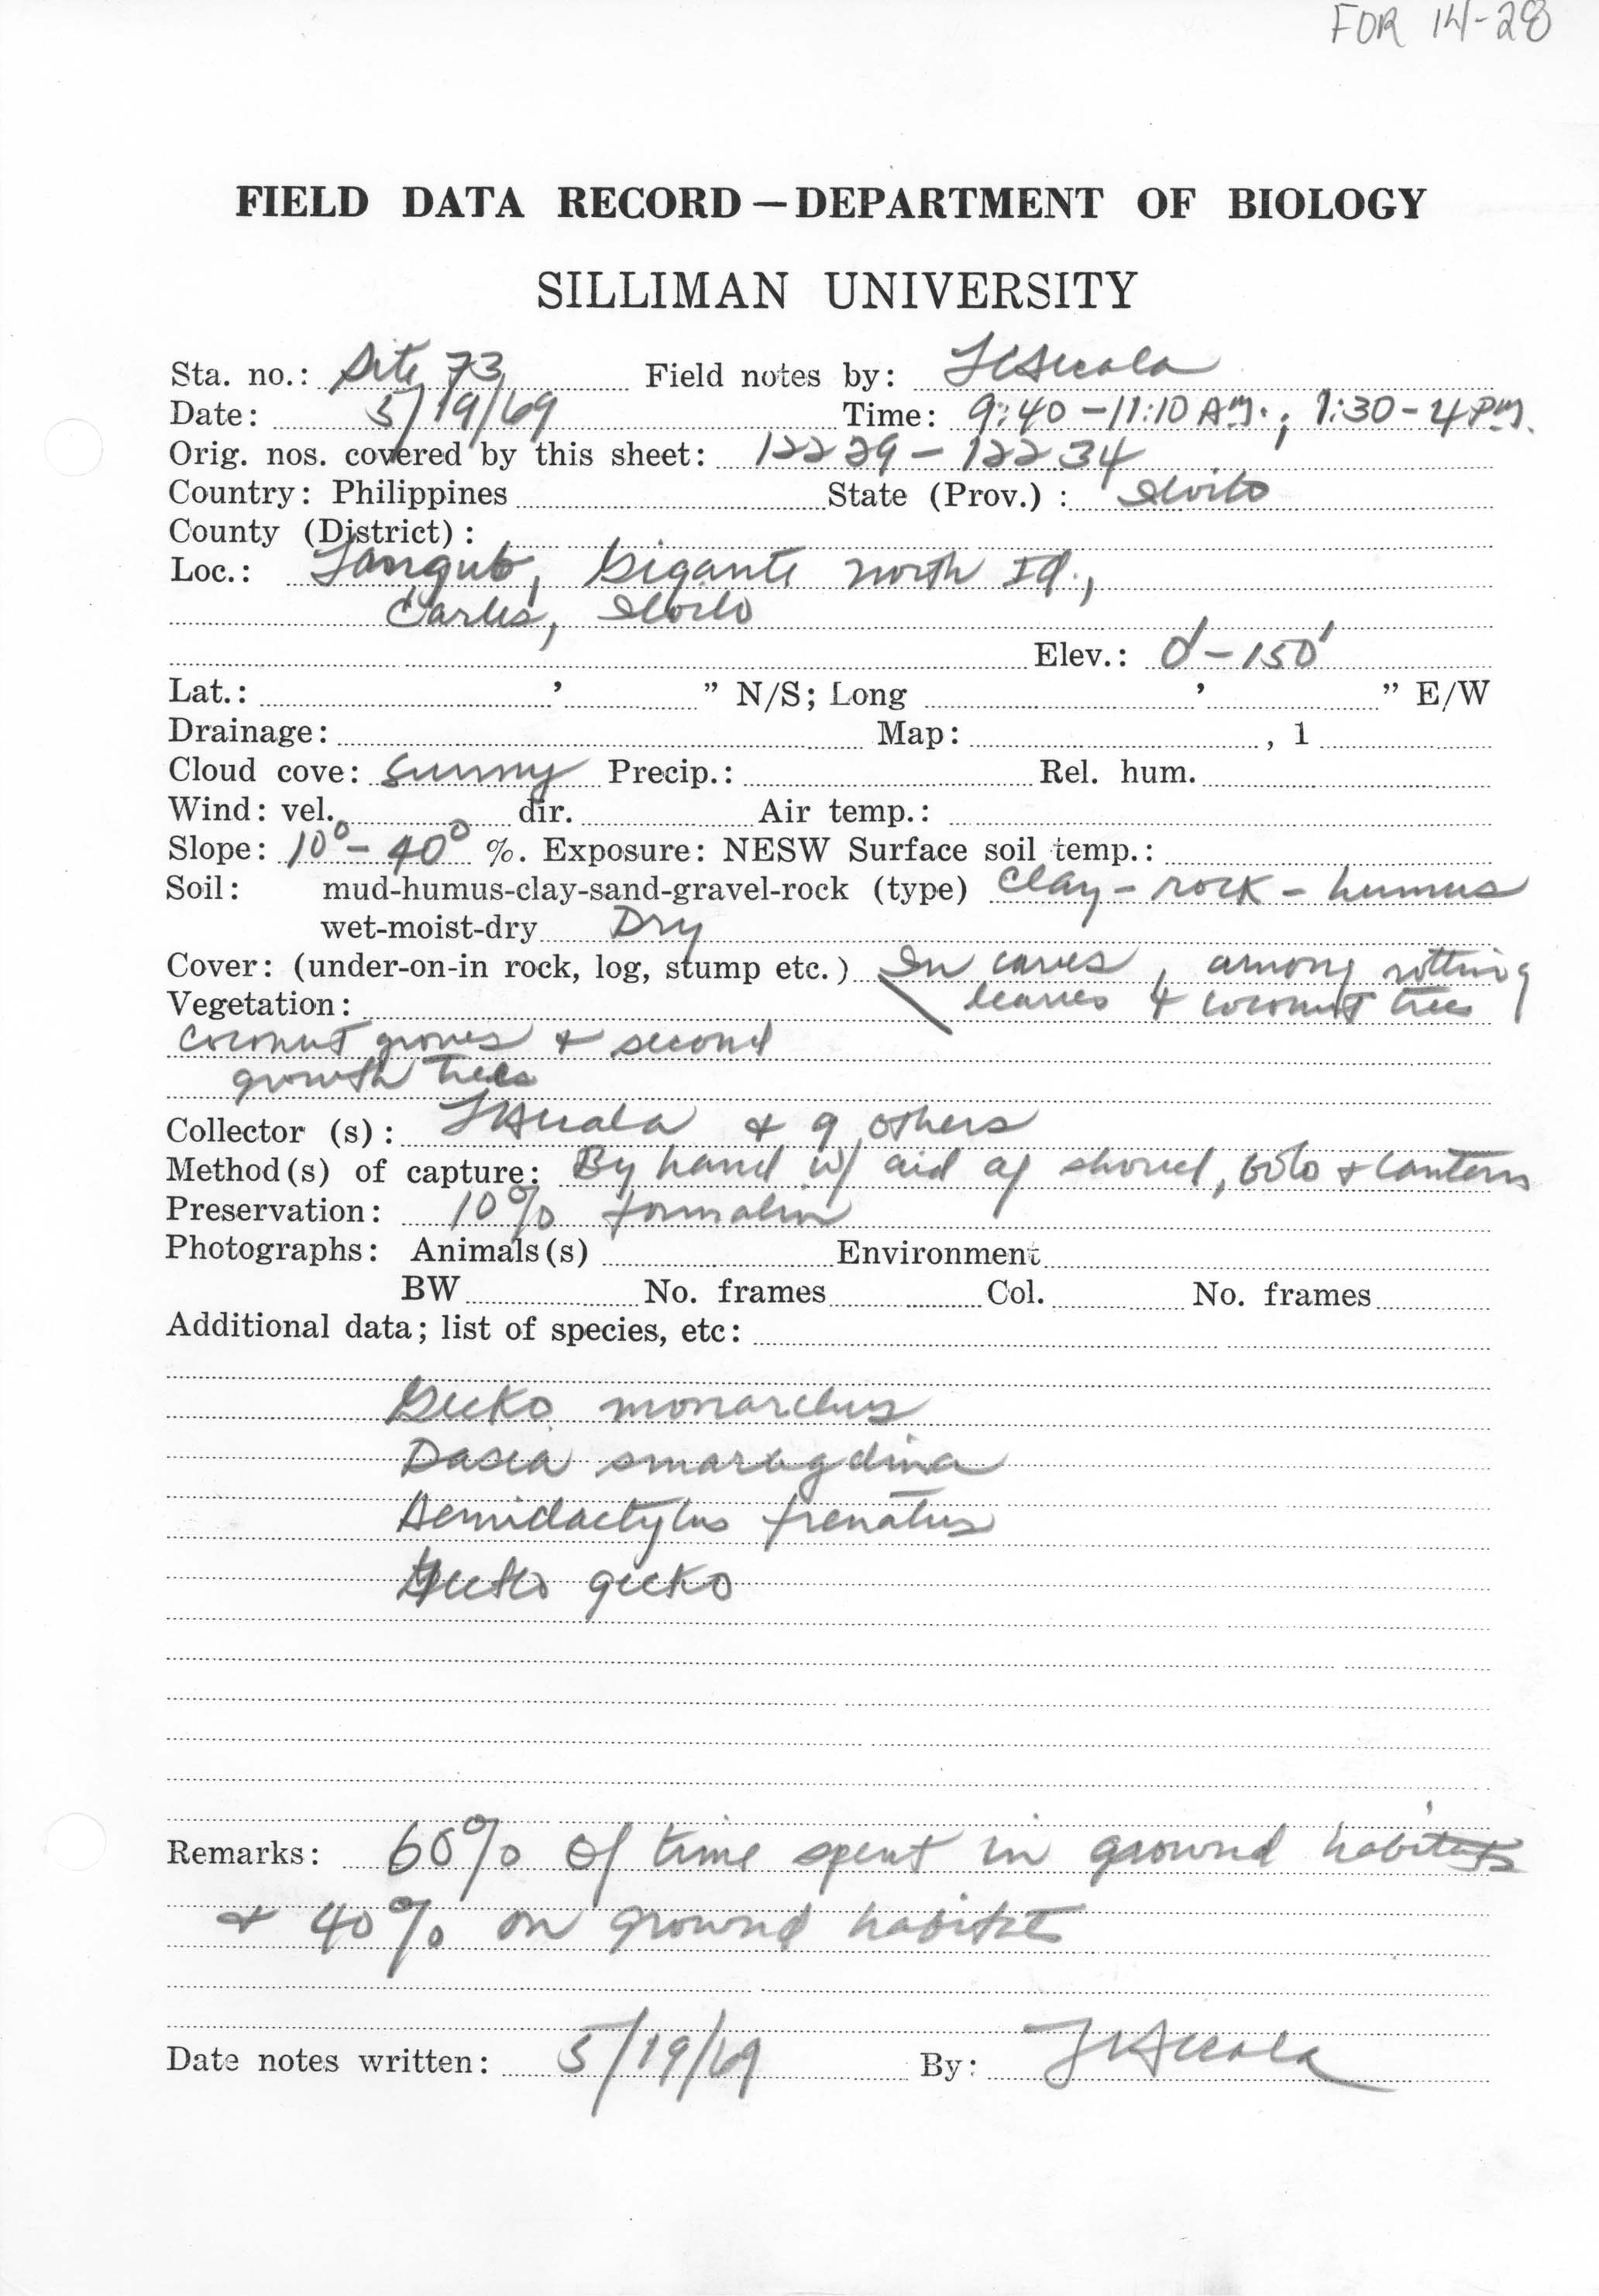 FOR 14-28
FIELD DATA RECORD—DEPARTMENT OF BIOLOGY
SILLIMAN UNIVERSITY
Sta. no.: Site 73 Field notes by: LCAlcala
Date: 5/19/69 Time: 9:40-11:10 AM.; 1:30-4 PM.
Orig. nos. covered by this sheet: 12229-12234
Country: Philippines State (Prov.): Iloilo
County (District):
Loc.: Langub, Gigante north Id.,
Carles, Iloilo
Elev.: 0'-150'
Lat.: ' " N/S; Long ' " E/W
Drainage: Map: , 1
Cloud cove: sunny Precip.: Rel. hum.
Wind: vel. dir. Air temp.:
Slope: 10°-40° %. Exposure: NESW Surface soil temp.:
Soil: mud-humus-clay-sand-gravel-rock (type) Clay-rock-humus
wet-moist-dry Dry
Cover: (under-on-in rock, log, stump etc.) In caves, among rotting
Vegetation: leaves & coconut trees
coconut groves & second
growth trees
Collector (s): LCAlcala & 9 others
Method(s) of capture: By hand w/ aid of shovel, bolo & lantern
Preservation: 10% formalin
Photographs: Animals(s) Environment
BW No. frames Col. No. frames
Additional data; list of species, etc:
Gecko monarchus
Dasia smaragdina
Hemidactylus frenatus
Gecko gecko
Remarks: 60% of time spent in ground habitats
& 40% on ground habitat
Date notes written: 5/19/69 By: LCAlcala